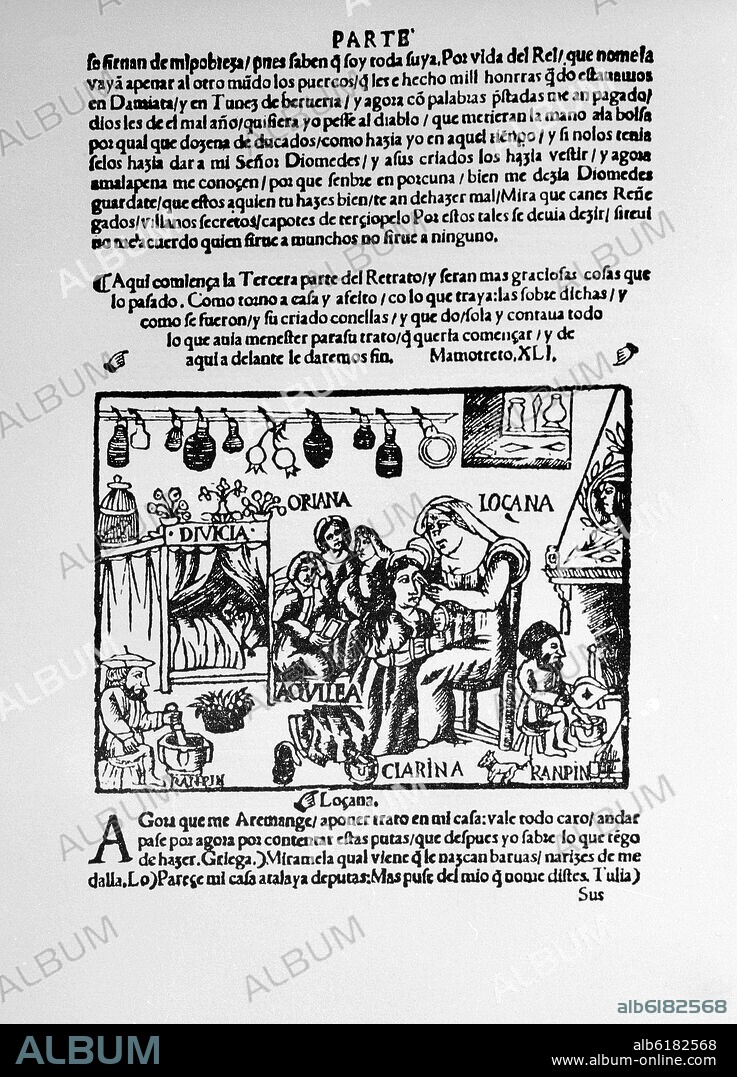 PARTE
se siruan de mi pobreza/ pues saben q̄ soy toda suya. Por vida del Rei/ que nome la
vayā apenar al otro mūdo los puercos/ q̄ les e hecho mill honrras q̄do estauamos
en Damiata/ y en Tunez de berueria/ y agora cō palabras p̄stadas me an pagado/
dios les de el mal año/ quisiera yo peste al diablo/ que metieran la mano ala bolsa
por qual que dozena de ducados/ como hazia yo en aquel tiempo/ y si nolos tenia
selos hazia dar a mi Señor Diomedes/ y asus criados los hazia vestir/ y agora
amalapena me conoçen/ por que senbre en porcuna/ bien me dezia Diomedes
guardate/ que estos aquien tu hazes bien/ te an dehazer mal/ Mira que canes Reñe
gados/ villanos secretos/ capotes de terçiopelo Por estos tales se deuia dezir/ si te ui
no me acuerdo quien sirue a munchos no sirue a ninguno.
Aqui comiença la Tercera parte del Retrato/ y seran mas graciosas cosas que
lo pasado. Como torno a casa y afeito/ co lo que traya: las sobre dichas/ y
como se fueron/ y su criado conellas/ y que do/ sola y contaua todo
lo que auia menester para su trato/ q̄ queria començar/ y de
aqui a delante le daremos fin. Mamotreto. XLI.
DIVICIA
ORIANA
LOÇANA
AQVILEA
RANPIN
CLARINA
RANPIN
Loçana.
AGora que me Aremange/ aponer trato en mi casa: vale todo caro/ andar
pase por agora por contentar estas putas/ que despues yo sabre lo que tēgo
de hazer. Griega.) Miramela qual viene q̄ le nazcan baruas/ narizes de me
dalla. Lo) Pareçe mi casa atalaya deputas: Mas puse del mio q̄ nome distes. Tulia)
Sus
ALBUM
alb6182568
ALBUM
alb6182568
www.album-online.com